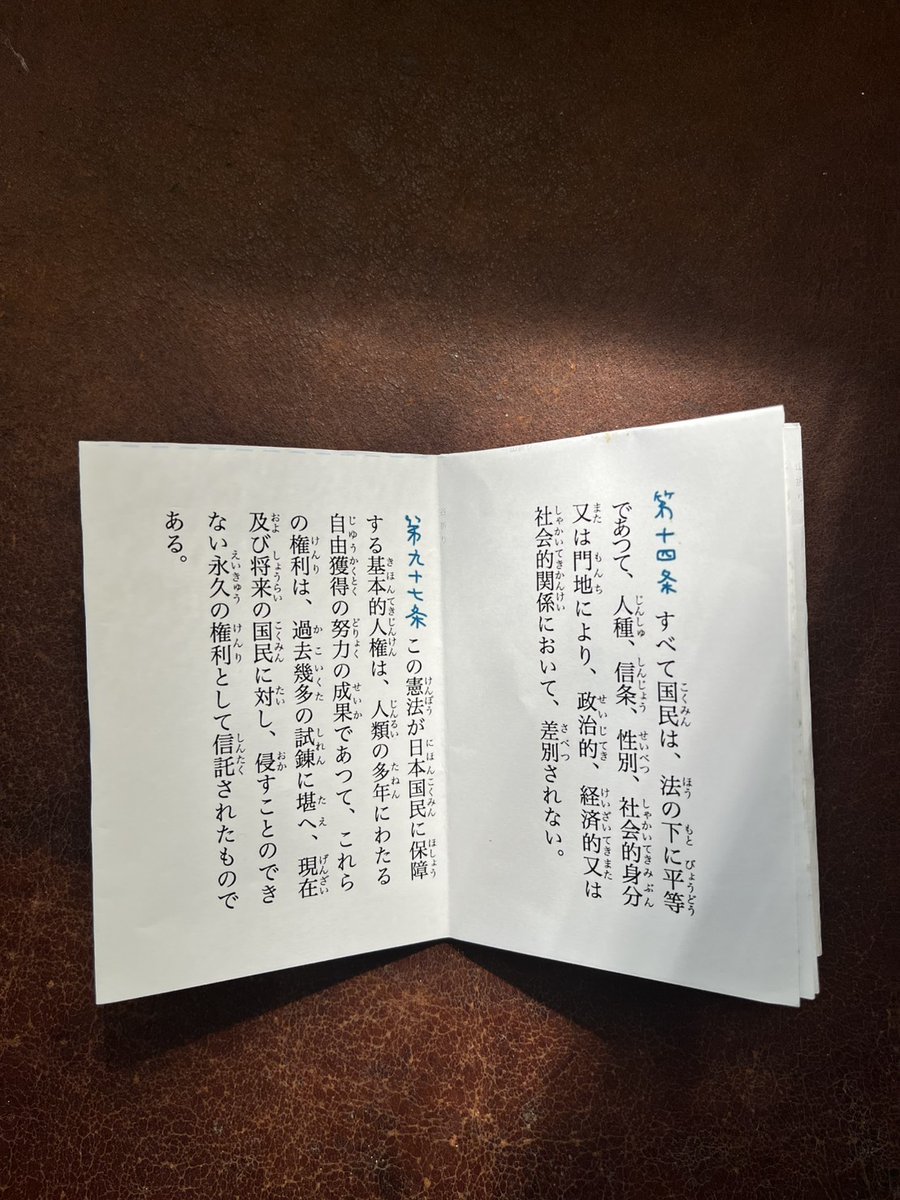 第十四条 すべて国民は、法の下に平等
であつて、人種、信条、性別、社会的身分
又は門地により、政治的、経済的又は
社会的関係において、差別されない。
第九十七条 この憲法が日本国民に保障
する基本的人権は、人類の多年にわたる
自由獲得の努力の成果であつて、これら
の権利は、過去幾多の試錬に堪へ、現在
及び将来の国民に対し、侵すことのでき
ない永久の権利として信託されたもので
ある。